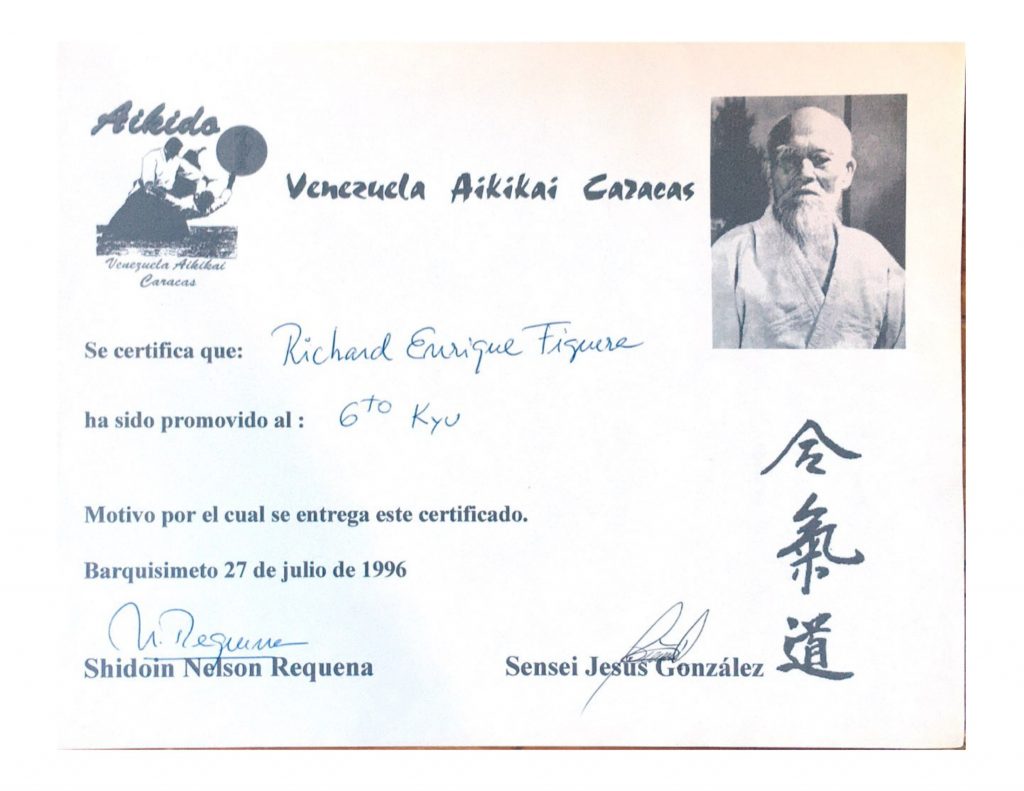 Aikido
Venezuela Aikikai
Caracas
Venezuela Aikikai Caracas
Se certifica que: Richard Enrique Figuera
ha sido promovido al : 6to Kyu
Motivo por el cual se entrega este certificado.
Barquisimeto 27 de julio de 1996
N. Requena
Shidoin Nelson Requena
Sensei Jesús González
合氣道